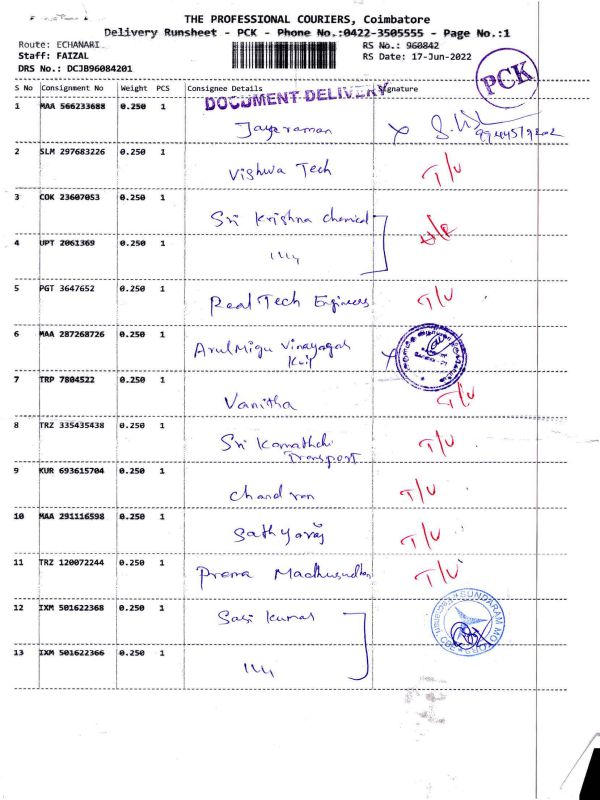 THE PROFESSIONAL COURIERS, Coimbatore
Delivery Runsheet - PCK - Phone No.:0422-3505555 - Page No.:1
Route: ECHANARI
Staff: FAIZAL
DRS No.: DCJB96084201
RS No.: 960842
RS Date: 17-Jun-2022
PCK
S No Consignment No Weight PCS Consignee Details Signature
DOCUMENT DELIVERY
1 MAA 566233688 0.250 1 Jayaraman
2 SLM 297683226 0.250 1 Vishwa Tech T/U
3 COK 23607053 0.250 1 Sri Krishna Chemical
4 UPT 2061369 0.250 1
5 PGT 3647652 0.250 1 Real Tech Engineers T/U
6 MAA 287268726 0.250 1 Arulmigu Vinayagar
7 TRP 7804522 0.250 1 Vanitha T/U
8 TRZ 335435438 0.250 1 Sri Kamathchi T/U
Transport
9 KUR 693615704 0.250 1 Chandran T/U
10 MAA 291116598 0.250 1 Sathyaraj T/U
11 TRZ 120072244 0.250 1 Prema Madhusudhan T/U
12 IXM 501622368 0.250 1 Sasi Kumar
SUNDARAM MOTORS
13 IXM 501622366 0.250 1